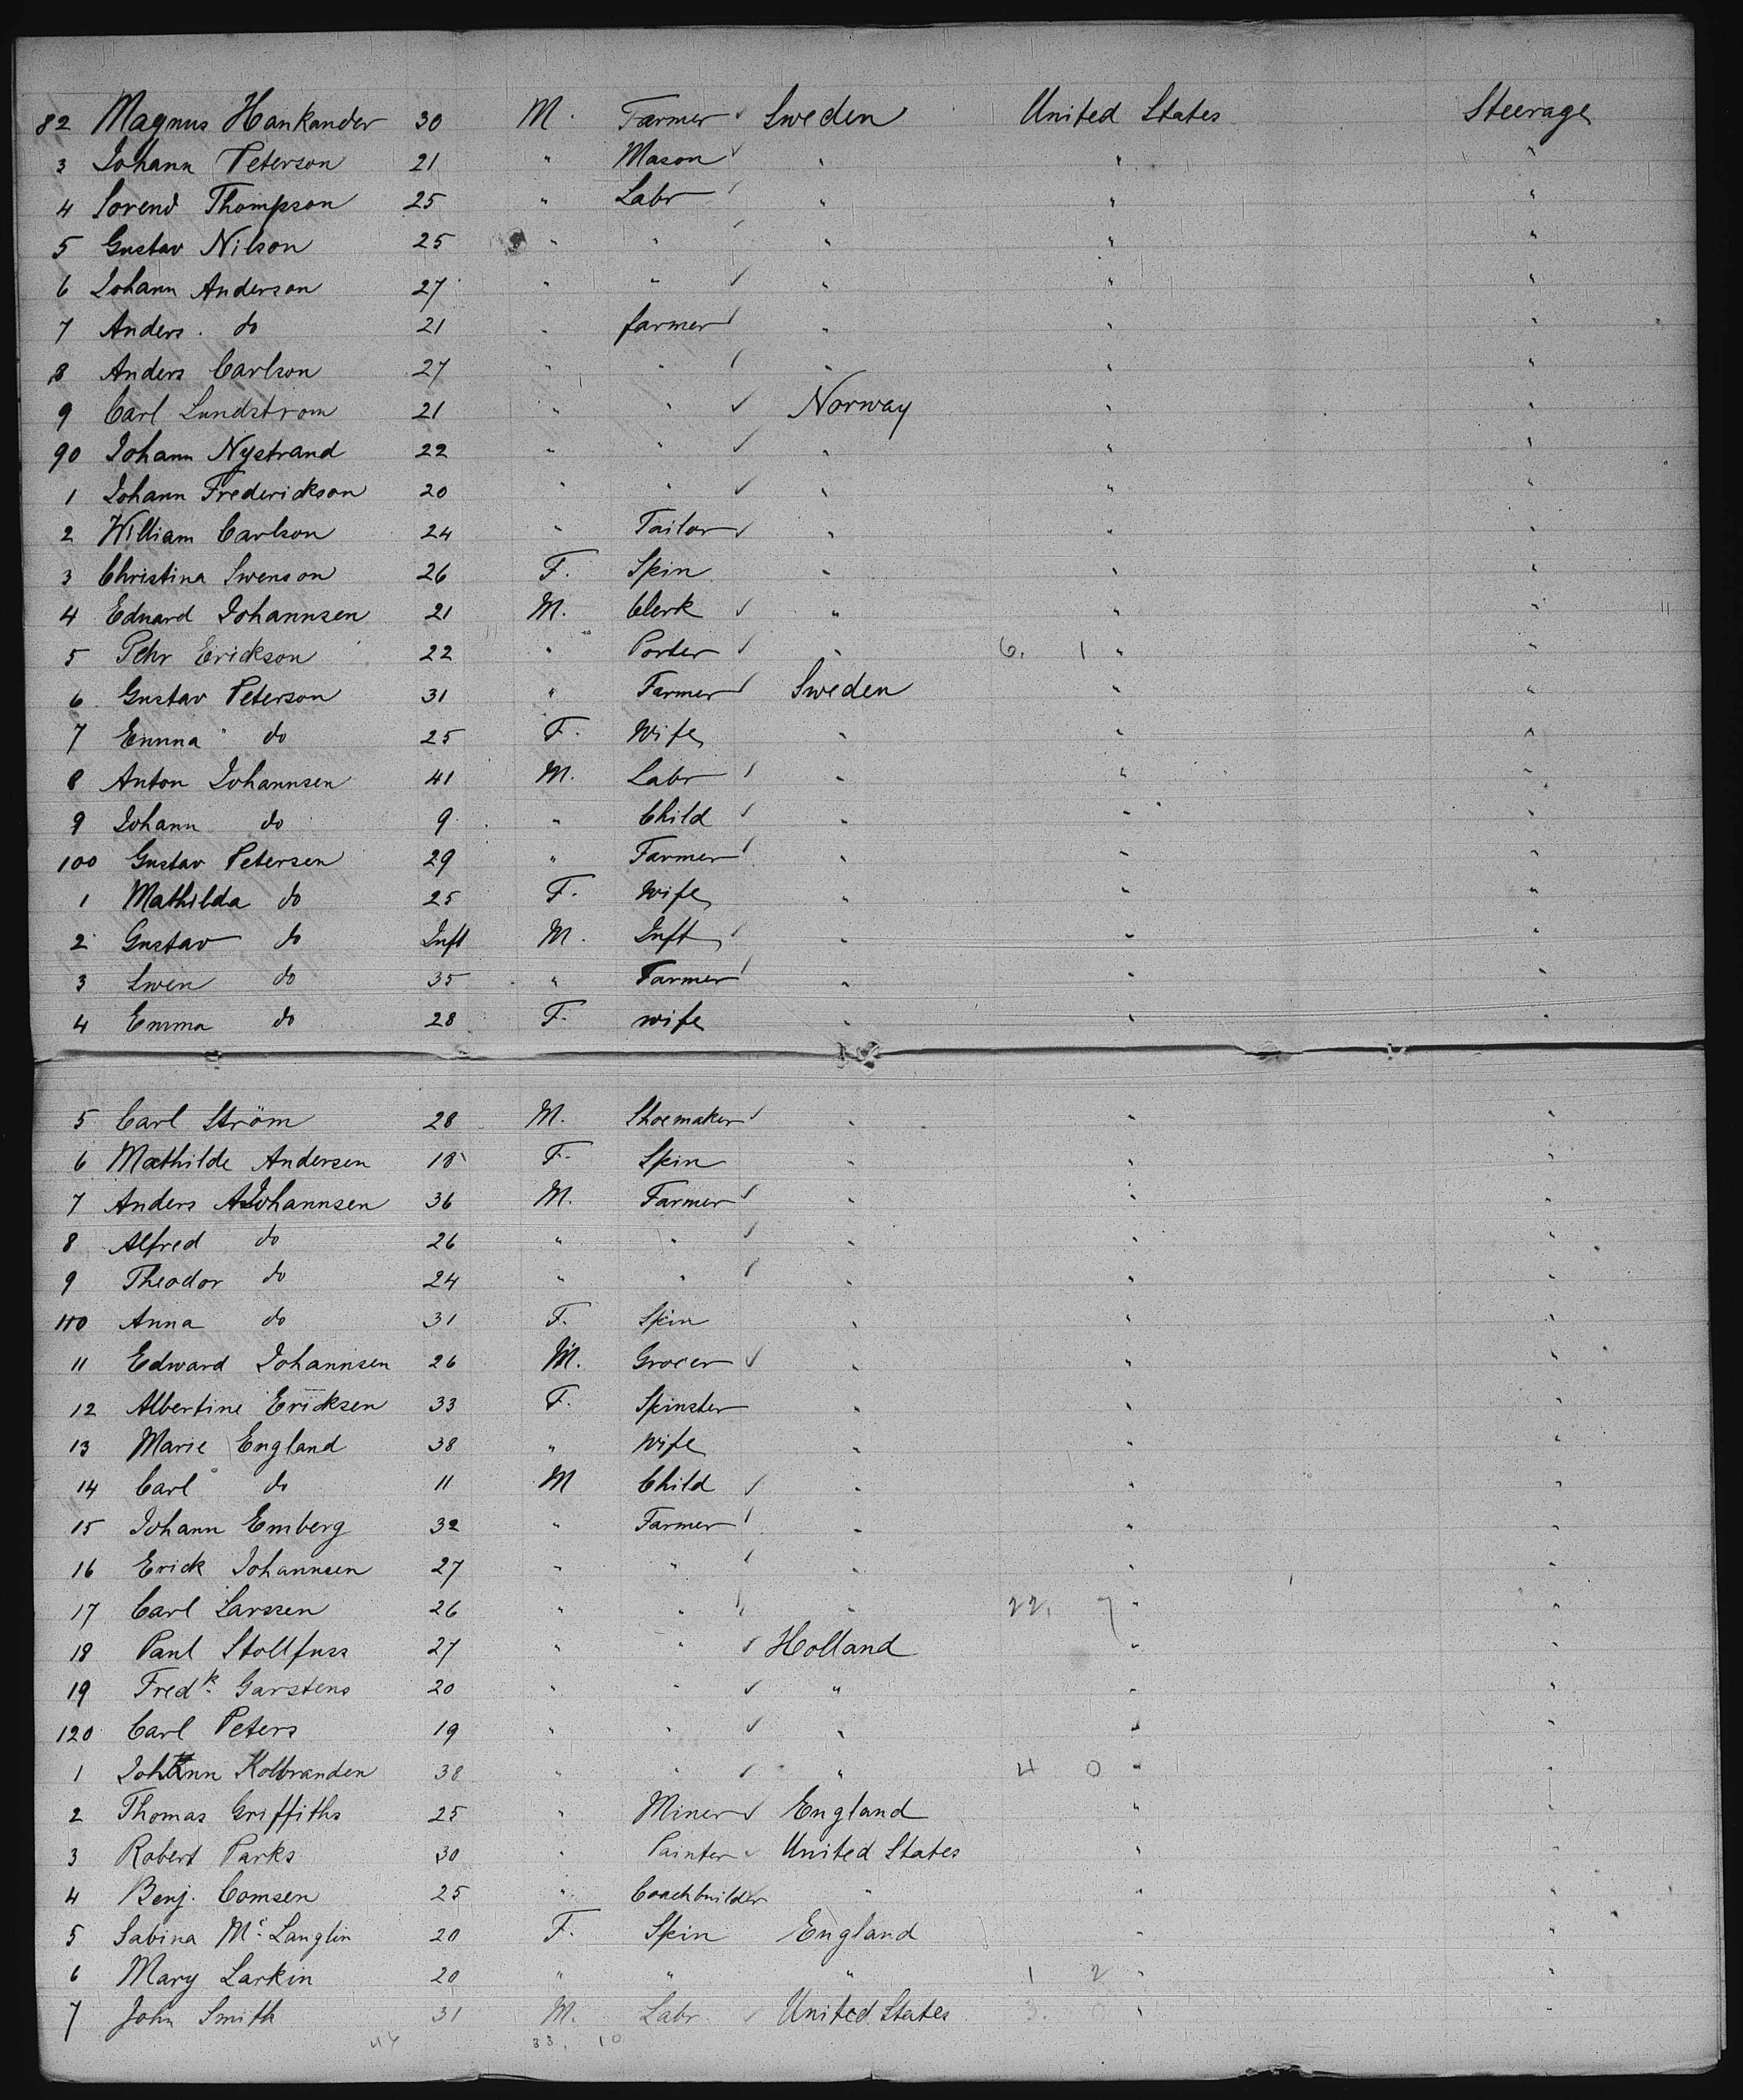 82 Magnus Hankander 30 M. Farmer ✓ Sweden United States Steerage
3 Johann Peterson 21 " Mason ✓ " " "
4 Sorend Thompson 25 " Labr ✓ " " "
5 Gustav Nilson 25 " " ✓ " " "
6 Johann Anderson 27 " " ✓ " " "
7 Anders. do 21 " farmer ✓ " " "
8 Anders Carlson 27 " " ✓ " " "
9 Carl Lundstrom 21 " " ✓ Norway " "
90 Johann Nystrand 22 " " ✓ " " "
1 Johann Frederickson 20 " " ✓ " " "
2 William Carlson 24 " Tailor ✓ " " "
3 Christina Swenson 26 F. Spin " " "
4 Eduard Johannsen 21 M. Clerk ✓ " " "
5 Pehr Erickson 22 " Porter ✓ " 6. 1 " "
6 Gustav Peterson 31 " Farmer ✓ Sweden " "
7 Emma do 25 F. Wife " " "
8 Anton Johannsen 41 M. Labr ✓ " " "
9 Johann do 9 " Child ✓ " " "
100 Gustav Petersen 29 " Farmer ✓ " " "
1 Mathilda do 25 F. Wife " " "
2 Gustav do Inft M. Inft ✓ " " "
3 Swen do 35 " Farmer ✓ " " "
4 Emma do 28 F. wife " " "
5 Carl Ström 28 M. Shoemaker ✓ " " "
6 Mathilde Andersen 18 F. Spin " " "
7 Anders Johannsen 36 M. Farmer ✓ " " "
8 Alfred do 26 " " ✓ " " "
9 Theodor do 24 " " ✓ " " "
110 Anna do 31 F. Spin " " "
11 Edward Johannsen 26 M. Grocer ✓ " " "
12 Albertine Ericksen 33 F. Spinster " " "
13 Marie England 38 " Wife " " "
14 Carl do 11 M Child ✓ " " "
15 Johann Emberg 32 " Farmer ✓ " " "
16 Erick Johannsen 27 " " ✓ " " "
17 Carl Larssen 26 " " ✓ " 22. 7 " "
18 Paul Stollfuss 27 " " ✓ Holland " "
19 Fredk. Garstens 20 " " ✓ " " "
120 Carl Peters 19 " " ✓ " " "
1 Johann Kolbranden 38 " " ✓ " 4 0 " "
2 Thomas Griffiths 25 " Miner ✓ England " "
3 Robert Parks 30 " Painter ✓ United States " "
4 Benj. Comsen 25 " Coachbuilder " " "
5 Sabina Mc Langlin 20 F. Spin England " "
6 Mary Larkin 20 " " " 1 2 " "
7 John Smith 31 M. Labr. ✓ United States 3. 0 " "
33. 10